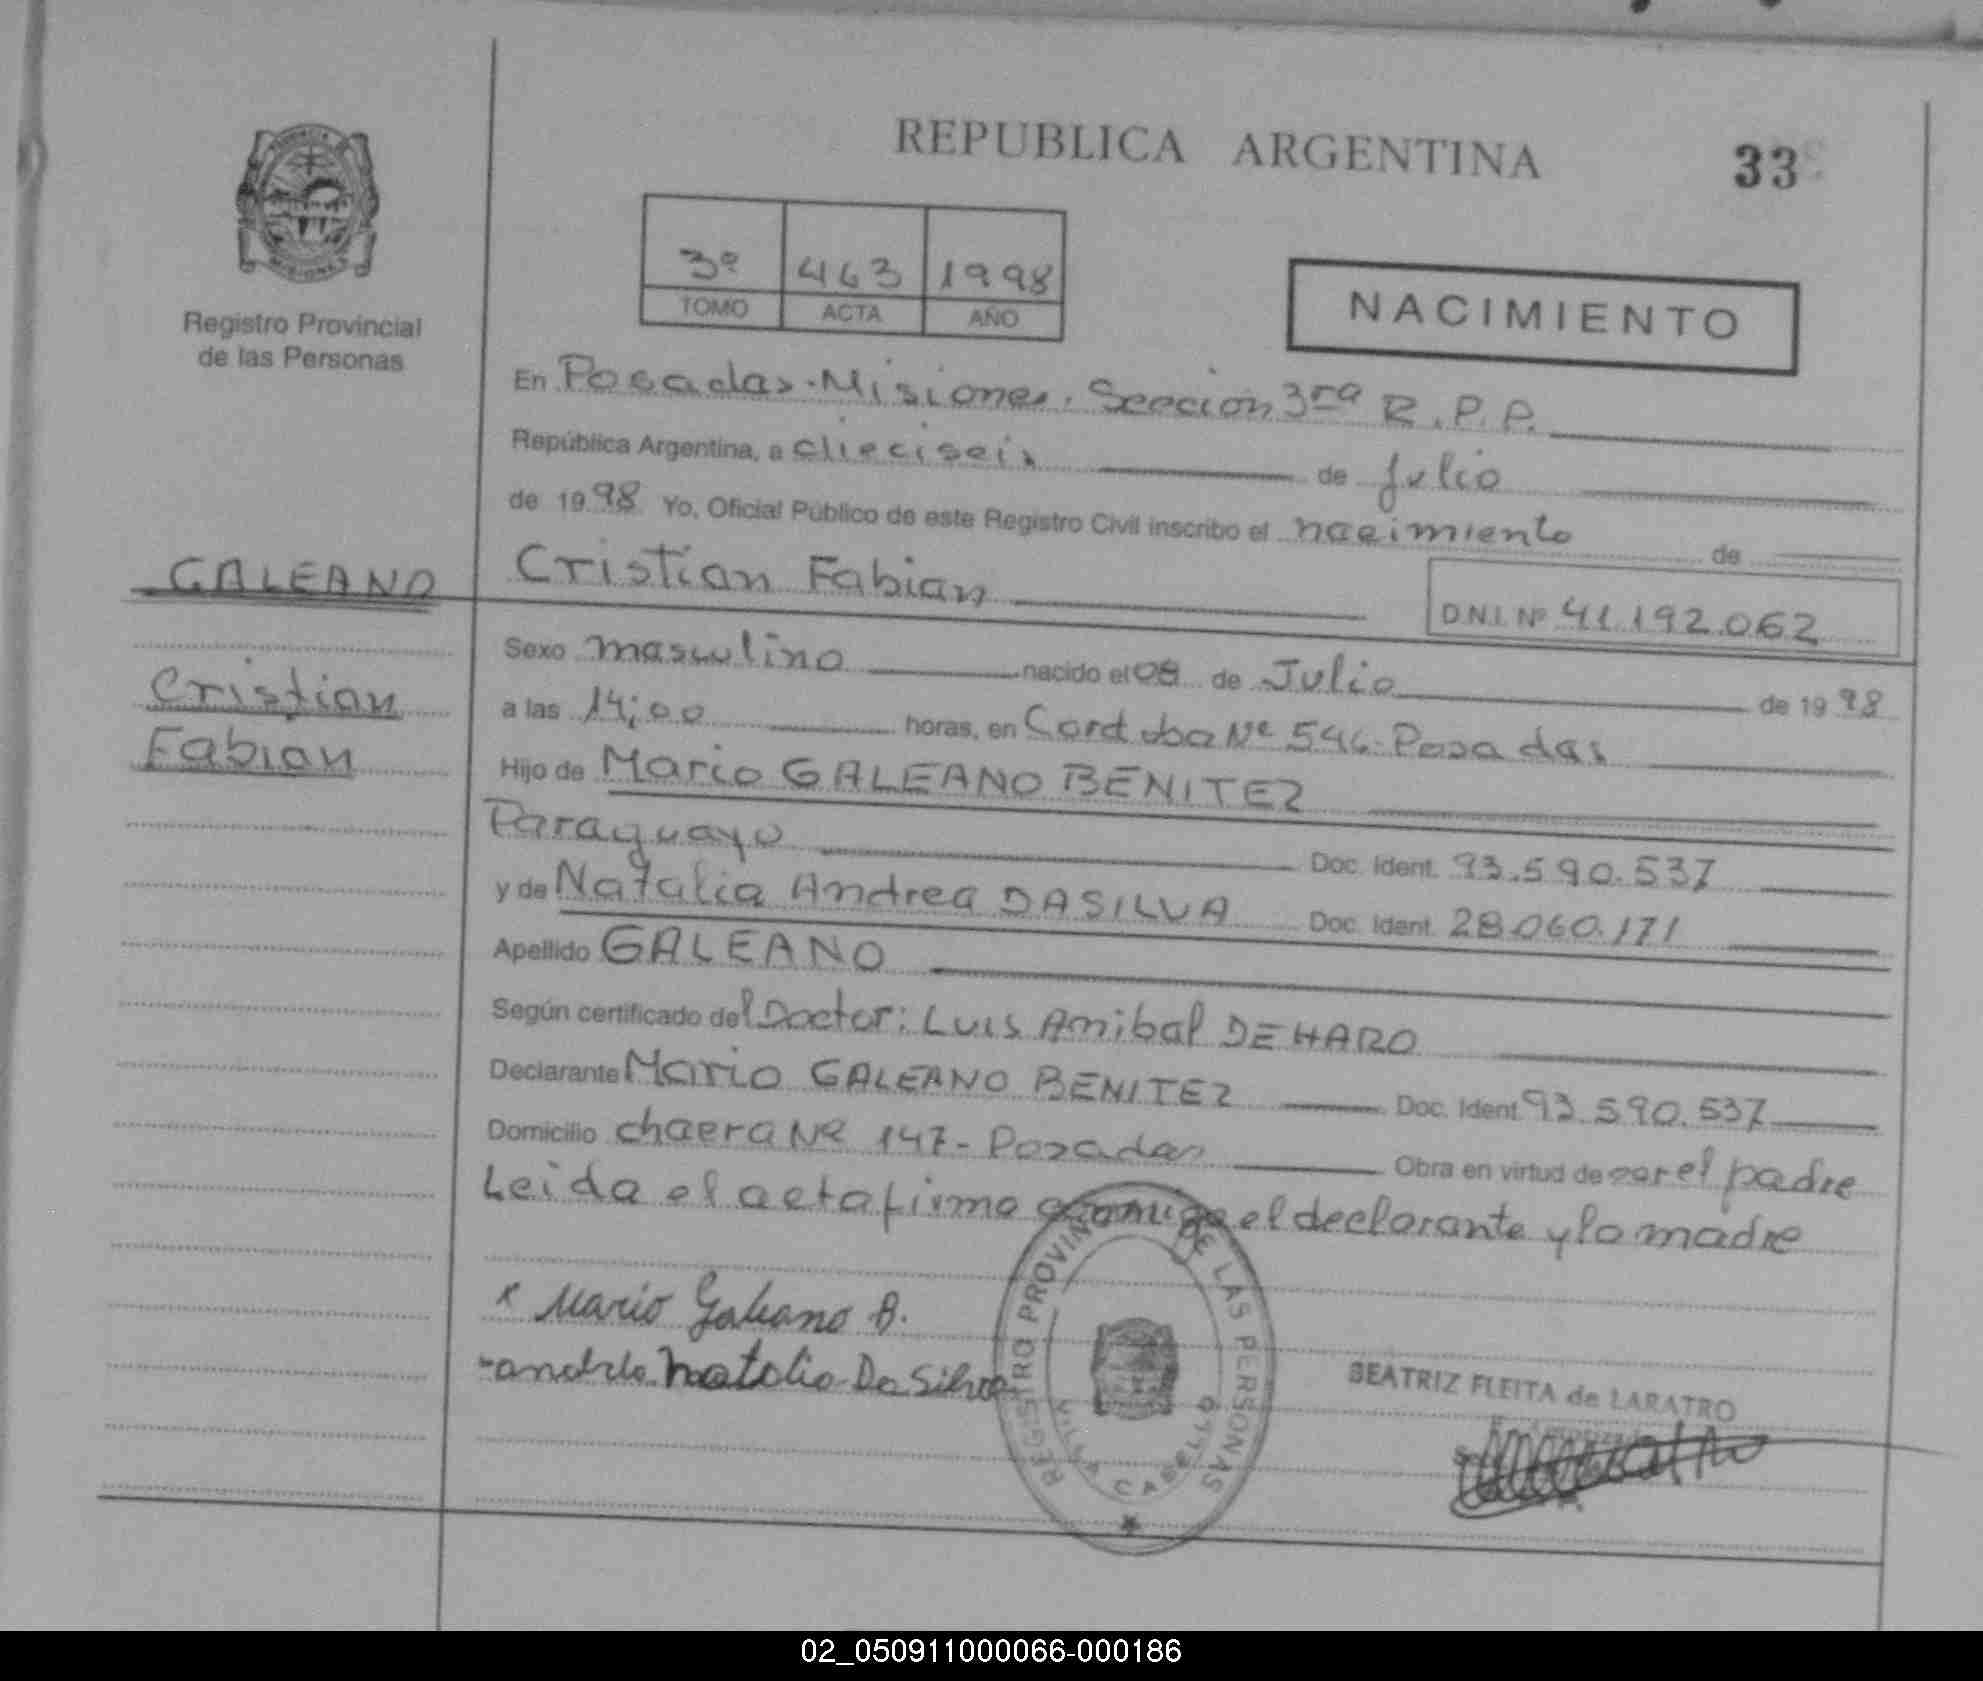 REPUBLICA ARGENTINA
33
3º 463 1998
TOMO ACTA AÑO
NACIMIENTO
Registro Provincial
de las Personas
En Posadas-Misiones. Sección 3ra R.P.P.
República Argentina, a dieciseis de Julio
de 1998 Yo, Oficial Público de este Registro Civil inscribo el nacimiento de
GALEANO
Cristian Fabian
D.N.I. Nº 41.192.062
Cristian
Fabian
Sexo masculino nacido el 08 de Julio de 1998
a las 14:00 horas, en Cordoba Nº 546-Posadas
Hijo de Mario GALEANO BENITEZ
Paraguayo Doc. Ident. 93.590.537
y de Natalia Andrea DASILVA Doc. Ident. 28.060.171
Apellido GALEANO
Según certificado del Doctor: Luis Anibal DEHARO
Declarante Mario GALEANO BENITEZ Doc. Ident. 93.590.537
Domicilio chacra Nº 147-Posadas Obra en virtud de ser el padre
Leida el acta firma conmigo el declarante y la madre
x Mario Galeano B.
Natalia Da Silva
REGISTRO PROVINCIAL DE LAS PERSONAS
VILLA CABELLO
BEATRIZ FLEITA de LARATRO
02_050911000066-000186